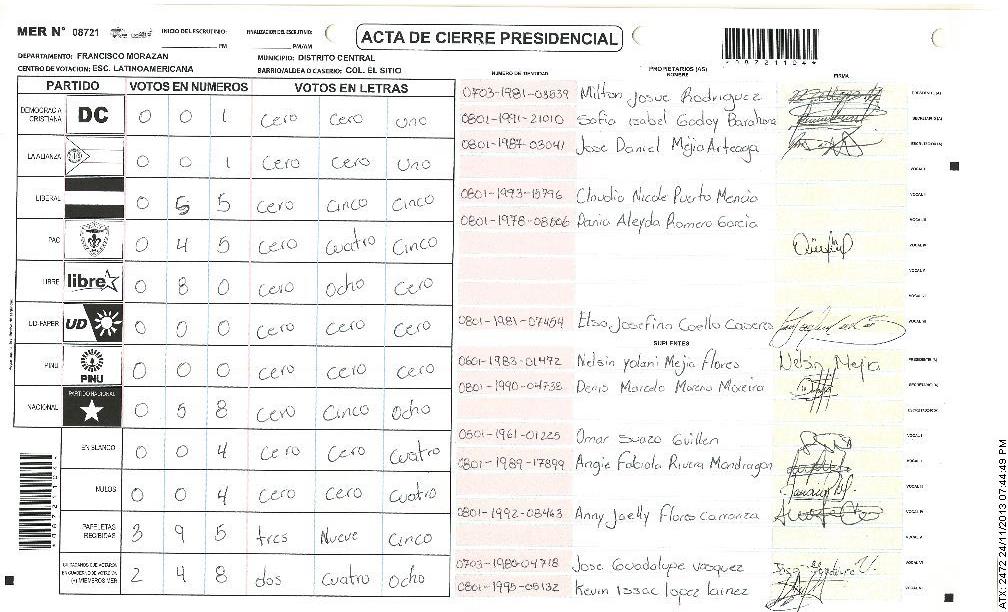 MER N° 08721 INICIO DEL ESCRUTINIO: PM FINALIZACION DEL ESCRUTINIO: PM/AM
ACTA DE CIERRE PRESIDENCIAL
DEPARTAMENTO: FRANCISCO MORAZAN MUNICIPIO: DISTRITO CENTRAL
CENTRO DE VOTACION: ESC. LATINOAMERICANA BARRIO/ALDEA O CASERIO: COL. EL SITIO
PARTIDO VOTOS EN NUMEROS VOTOS EN LETRAS
DEMOCRACIA CRISTIANA DC 0 0 1 Cero Cero uno
LA ALIANZA 0 0 1 Cero Cero Uno
LIBERAL 0 5 5 Cero Cinco Cinco
PAC 0 4 5 Cero Cuatro Cinco
LIBRE libre 0 8 0 Cero Ocho Cero
UD-FAPER UD 0 0 0 Cero Cero Cero
PINU PINU 0 0 0 Cero Cero Cero
NACIONAL PARTIDO NACIONAL 0 5 8 Cero Cinco Ocho
EN BLANCO 0 0 4 Cero Cero Cuatro
NULOS 0 0 4 Cero Cero Cuatro
PAPELETAS RECIBIDAS 3 9 5 tres Nueve Cinco
CIUDADANOS QUE VOTARON EN CUADERNO DE VOTACION (+) MIEMBROS MER 2 4 8 dos Cuatro Ocho
NUMERO DE IDENTIDAD PROPIETARIOS (AS) NOMBRE FIRMA
0703-1981-03539 Milton Josue Rodriguez PRESIDENTE(A)
0801-1991-21010 Sofia Isabel Godoy Barahona SECRETARIO(A)
0801-1987-03041 Jose Daniel Mejia Arteaga ESCRUTADOR(A)
VOCAL I
0801-1993-13796 Claudia Nicole Puerto Mencia VOCAL II
0801-1978-08606 Dania Aleyda Romero Garcia VOCAL III
VOCAL IV
VOCAL V
VOCAL VI
0801-1981-07454 Elsa Josefina Coello Cabrera VOCAL VII
SUPLENTES
0801-1983-01472 Nelsin Yolani Mejia Flores Nelsin Mejia PRESIDENTE(A)
0801-1990-04738 Denis Marcelo Moreno SECRETARIO(A)
ESCRUTADOR(A)
0501-1961-01225 Omar Suazo Guillen VOCAL I
0801-1989-17899 Angie Fabiola Rivera Mondragon VOCAL II
VOCAL III
0801-1992-08463 Anny Jaelly Flores Carranza VOCAL IV
VOCAL V
0703-1980-04718 Jose Guadalupe vasquez VOCAL VI
0801-1995-05132 Kevin Issac lopez lainez
ATX-2472 24/11/2013 07:44:49 PM